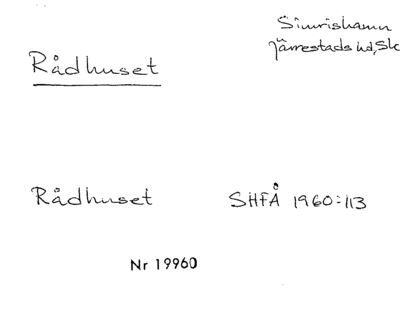 Simrishamn
Järrestads hd, Sk
Rådhuset
Rådhuset SHFÅ 1960:113
Nr 19960